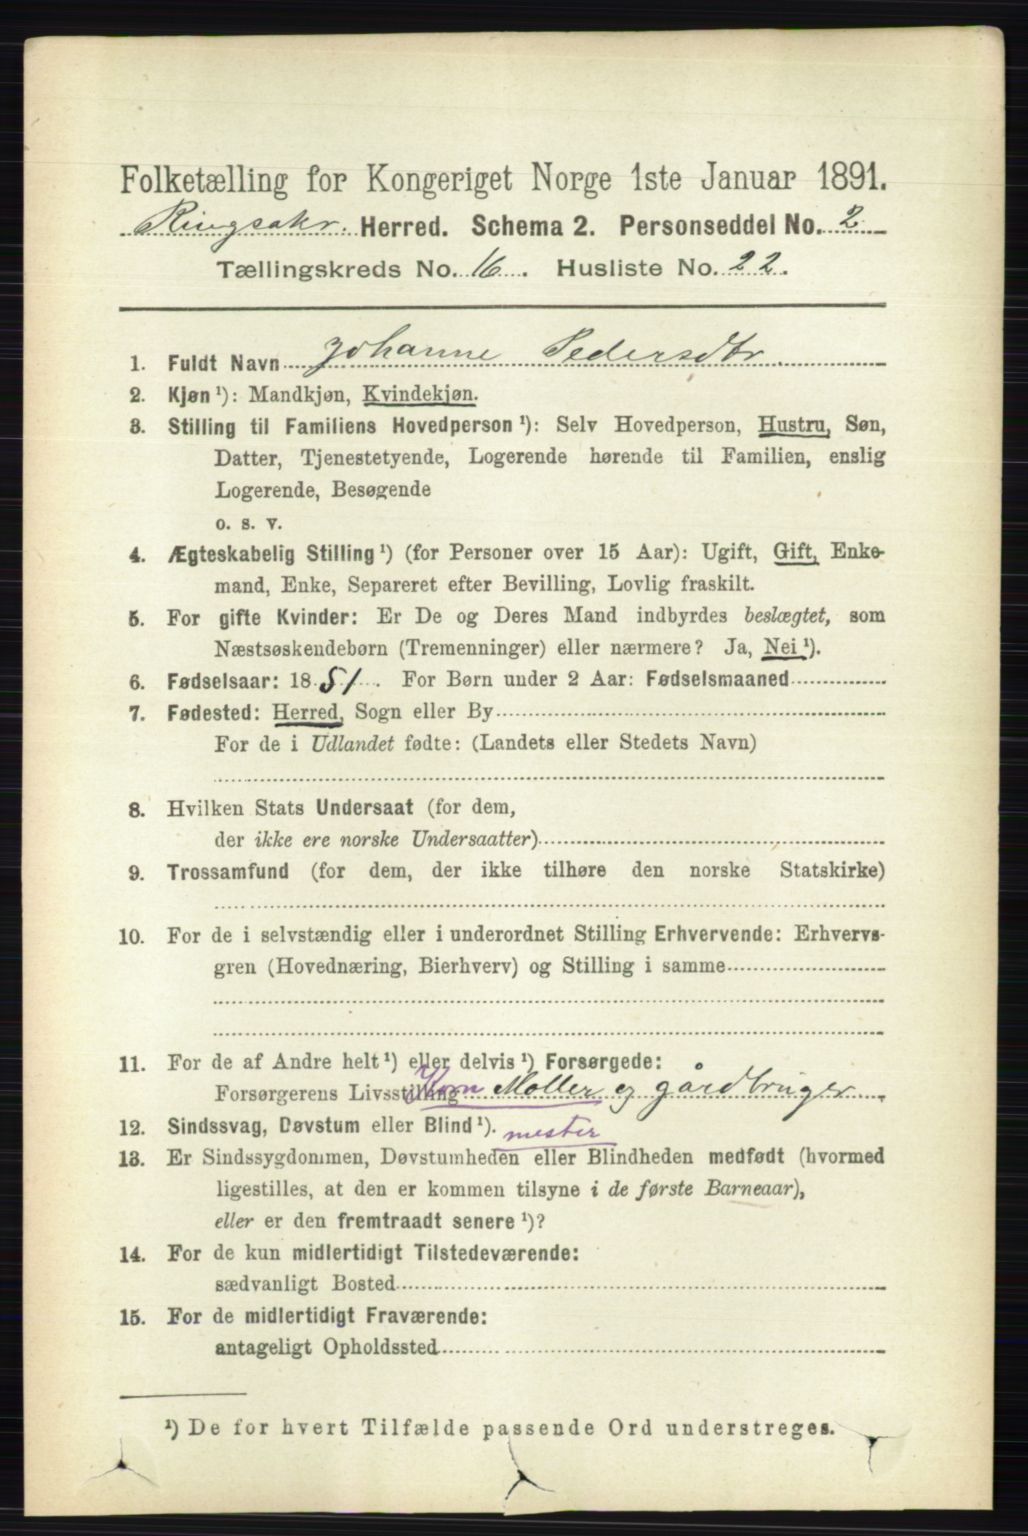 Folketælling for Kongeriget Norge 1ste Januar 1891.
Ringsakr. Herred. Schema 2. Personseddel No. 2
Tællingskreds No. 16. Husliste No. 22.
1. Fuldt Navn Johanne Pedersdtr.
2. Kjøn ¹): Mandkjøn, Kvindekjøn.
3. Stilling til Familiens Hovedperson ¹): Selv Hovedperson, Hustru, Søn,
Datter, Tjenestetyende, Logerende hørende til Familien, enslig
Logerende, Besøgende
o. s. v.
4. Ægteskabelig Stilling ¹) (for Personer over 15 Aar): Ugift, Gift, Enke-
mand, Enke, Separeret efter Bevilling, Lovlig fraskilt.
5. For gifte Kvinder: Er De og Deres Mand indbyrdes beslægtet, som
Næstsøskendebørn (Tremenninger) eller nærmere? Ja, Nei ¹).
6. Fødselsaar: 1851. For Børn under 2 Aar: Fødselsmaaned
7. Fødested: Herred, Sogn eller By
For de i Udlandet fødte: (Landets eller Stedets Navn)
8. Hvilken Stats Undersaat (for dem,
der ikke ere norske Undersaatter)
9. Trossamfund (for dem, der ikke tilhøre den norske Statskirke)
10. For de i selvstændig eller i underordnet Stilling Erhvervende: Erhvervs-
gren (Hovednæring, Bierhverv) og Stilling i samme
11. For de af Andre helt ¹) eller delvis ¹) Forsørgede:
Forsørgerens Livsstilling Korn Møller og gårdbruger
12. Sindssvag, Døvstum eller Blind ¹). mester
13. Er Sindssygdommen, Døvstumheden eller Blindheden medfødt (hvormed
ligestilles, at den er kommen tilsyne i de første Barneaar),
eller er den fremtraadt senere ¹)?
14. For de kun midlertidigt Tilstedeværende:
sædvanligt Bosted
15. For de midlertidigt Fraværende:
antageligt Opholdssted
¹) De for hvert Tilfælde passende Ord understreges.